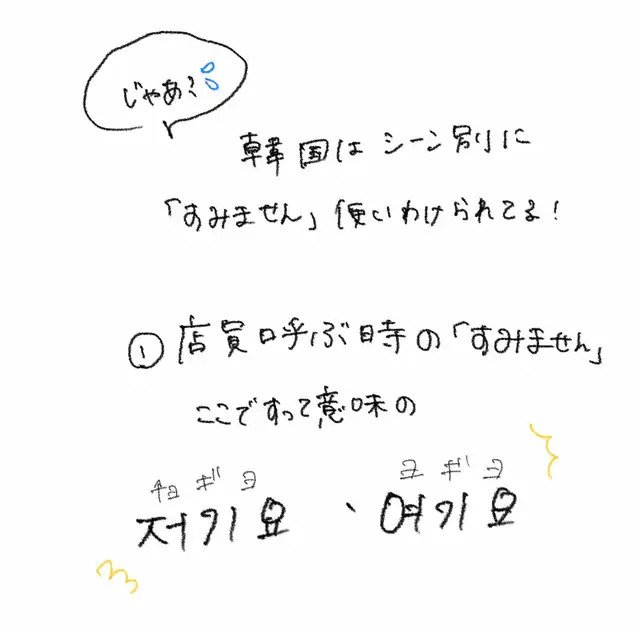 じゃあ？
韓国はシーン別に
「すみません」使いわけられてる！
① 店員呼ぶ時の「すみません」
ここですって意味の
チョギヨ ヨギヨ
저기요、여기요